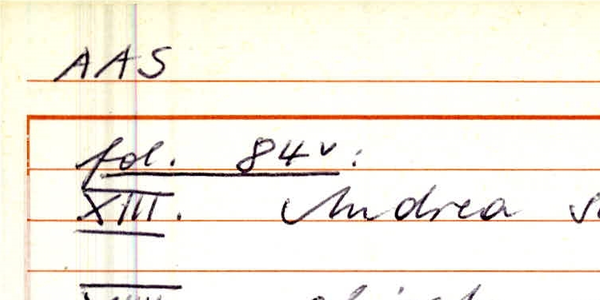 AAS
fol. 84v:
XIII. Andrea